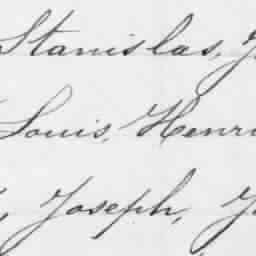 Stanislas,
Louis, Henri
, Joseph,